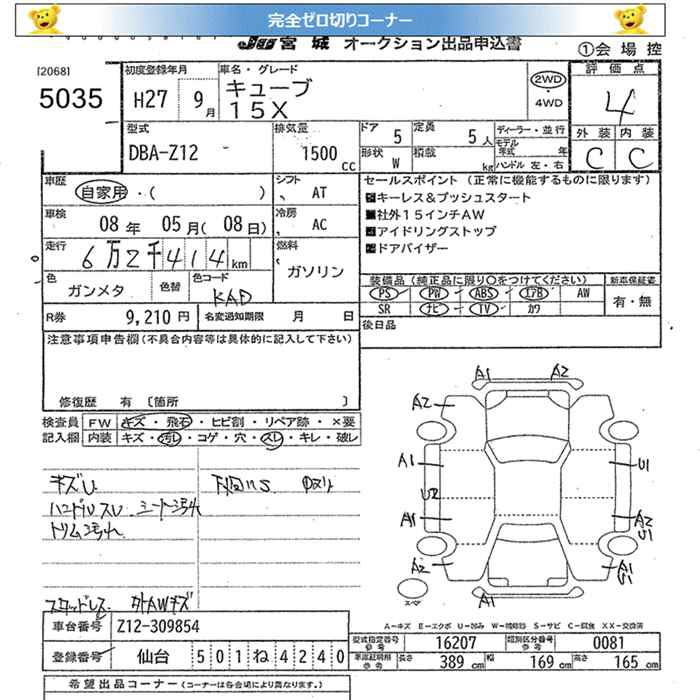 完全ゼロ切りコーナー
JU 宮城 オークション出品申込書
①会場控
[2068]
5035
初度登録年月 H27 9月
車名・グレード キューブ 15X
2WD・4WD
評価点 4
外装 内装
C C
型式 DBA-Z12
排気量 1500 cc
ドア 5 定員 5人
形状 W 積載 kg
ディーラー・並行
モデル年式 年
ハンドル 左・右
車歴 自家用・( )
シフト AT
車検 08年 05月(08日)
冷房 AC
走行 6万2千414km
燃料 ガソリン
色 ガンメタ 色替 色コード KAD
R券 9,210円 名変通知期限 月 日
セールスポイント (正常に機能するものに限ります)
キーレス&プッシュスタート
社外15インチAW
アイドリングストップ
ドアバイザー
装備品(純正品に限り○をつけてください) 新車保証書
PS PW ABS エアB AW 有・無
SR ナビ TV カワ
後日品
注意事項申告欄(不具合内容等は具体的に記入して下さい)
修復歴 有 〔箇所 〕
検査員 FW キズ・飛石・ヒビ割・リペア跡・×要
記入欄 内装 キズ・汚レ・コゲ・穴・スレ・キレ・破レ
キズU
ハンドルスレ シート汚れ
トリム汚れ
スタッドレス 外AWキズ
A1 A2
A2 A2
A1 U1
U2
A1 A2 U1
A2 A2 U1
A1
スペア
A-キズ E-エクボ U-凹み W-補修跡 S-サビ C-腐食 XX-交換済
車台番号 Z12-309854
登録番号 仙台 501ね4240
型式指定番号 参考 16207 類別区分番号 参考 0081
車検証明用 参考 長さ 389cm 幅 169cm 高さ 165cm
希望出品コーナー(コーナーは各会場により異なります。)